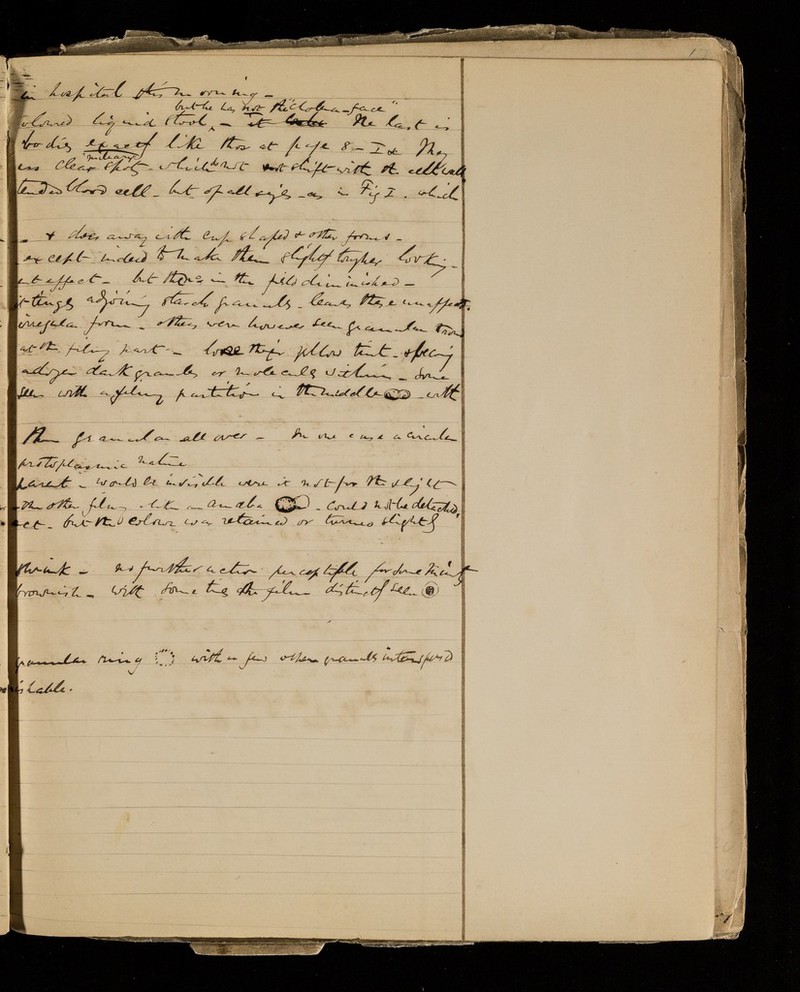 in hospital this morning -
but he has not the "cholera-face"
oloured liquid stool, - it The last is
bodies exactly like those at page 8 - I & They
nuclear
ess clear spots - which do not shift with the cell wall
tended blood cell - but of all sizes - as in Fig I. which
- & does away with cup shaped & other forms -
except indeed to make them slightly tougher looking -
nt effect - but there in the field diminished -
it tinges adjoining starch granules - leaves these unaffect
irregular form - others were however seen granular
at the filmy part - lose their yellow tint - & 
dark granules or molecules within - some
seen with a filmy partition in the middle - with
Then granular all over - In one case a circular
protoplasmic nature
parent - would be invisible were it not for the slight
the other filmy - like an amœba - could not be detected.
act - but the colour was retained or turned slightly
shrink - no further action perceptible for some time
brownish - with some the film distinctly seen
granular ring with a few other granules interspersed
ishable.